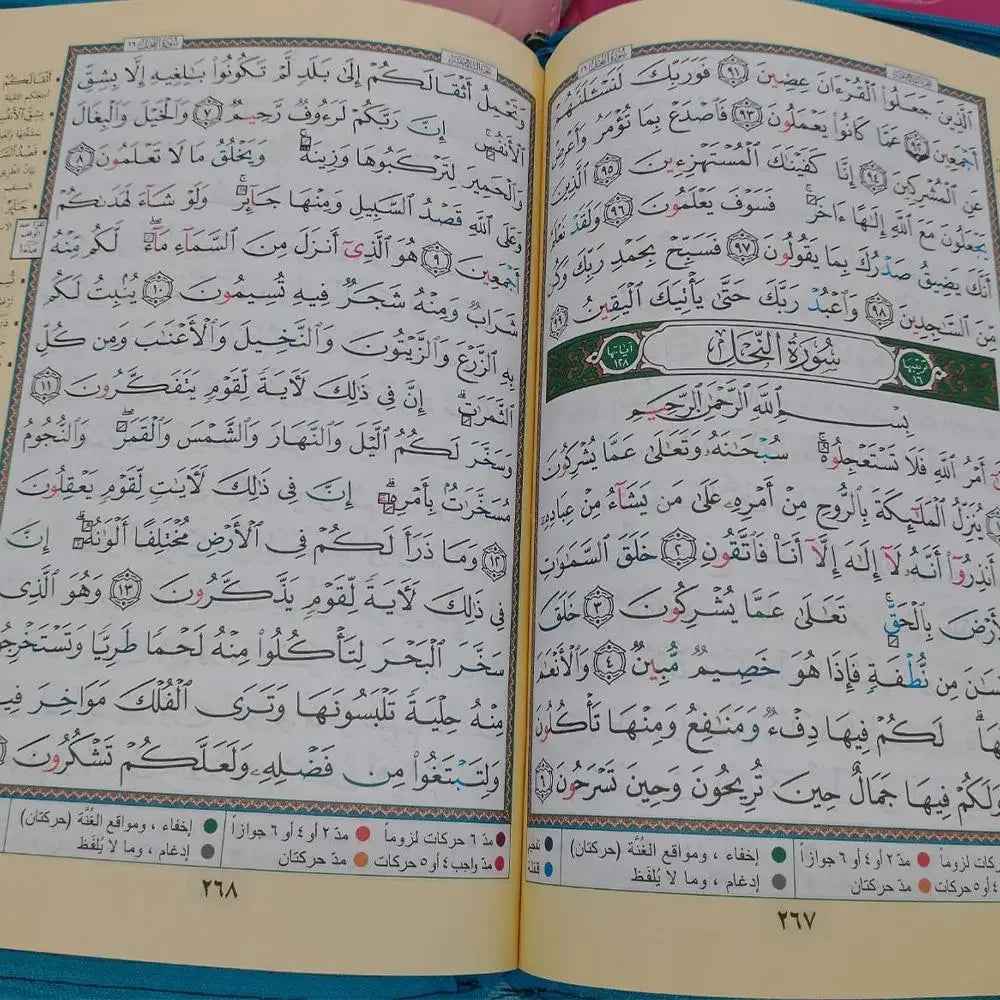 ٱلَّذِينَ جَعَلُوا۟ ٱلْقُرْءَانَ عِضِينَ ٩١ فَوَرَبِّكَ لَنَسْـَٔلَنَّهُمْ
أَجْمَعِينَ ٩٢ عَمَّا كَانُوا۟ يَعْمَلُونَ ٩٣ فَٱصْدَعْ بِمَا تُؤْمَرُ وَأَعْرِضْ
عَنِ ٱلْمُشْرِكِينَ ٩٤ إِنَّا كَفَيْنَٰكَ ٱلْمُسْتَهْزِءِينَ ٩٥ ٱلَّذِينَ
يَجْعَلُونَ مَعَ ٱللَّهِ إِلَٰهًا ءَاخَرَ فَسَوْفَ يَعْلَمُونَ ٩٦ وَلَقَدْ نَعْلَمُ
أَنَّكَ يَضِيقُ صَدْرُكَ بِمَا يَقُولُونَ ٩٧ فَسَبِّحْ بِحَمْدِ رَبِّكَ وَكُن
مِّنَ ٱلسَّٰجِدِينَ ٩٨ وَٱعْبُدْ رَبَّكَ حَتَّىٰ يَأْتِيَكَ ٱلْيَقِينُ ٩٩
ترتيبها ١٦ سُورَةُ النَّحْلِ آياتها ١٢٨
بِسْمِ ٱللَّهِ ٱلرَّحْمَٰنِ ٱلرَّحِيمِ
أَمْرُ ٱللَّهِ فَلَا تَسْتَعْجِلُوهُ سُبْحَٰنَهُۥ وَتَعَٰلَىٰ عَمَّا يُشْرِكُونَ
يُنَزِّلُ ٱلْمَلَٰٓئِكَةَ بِٱلرُّوحِ مِنْ أَمْرِهِۦ عَلَىٰ مَن يَشَآءُ مِنْ عِبَادِهِۦٓ
أَنذِرُوٓا۟ أَنَّهُۥ لَآ إِلَٰهَ إِلَّآ أَنَا۠ فَٱتَّقُونِ ٢ خَلَقَ ٱلسَّمَٰوَٰتِ
بِٱلْحَقِّ تَعَٰلَىٰ عَمَّا يُشْرِكُونَ ٣ خَلَقَ
مِن نُّطْفَةٍ فَإِذَا هُوَ خَصِيمٌ مُّبِينٌ ٤ وَٱلْأَنْعَٰمَ
لَكُمْ فِيهَا دِفْءٌ وَمَنَٰفِعُ وَمِنْهَا تَأْكُلُونَ
وَلَكُمْ فِيهَا جَمَالٌ حِينَ تُرِيحُونَ وَحِينَ تَسْرَحُونَ ٦
مدّ ٢ أو ٤ أو ٦ جوازاً
إخفاء ، ومواقع الغُنَّة (حركتان)
مدّ حركتان
إدغام ، وما لا يُلفَظ
٢٦٧
سُورَةُ النَّحْلِ ١٦
وَتَحْمِلُ أَثْقَالَكُمْ إِلَىٰ بَلَدٍ لَّمْ تَكُونُوا۟ بَٰلِغِيهِ إِلَّا بِشِقِّ
ٱلْأَنفُسِ إِنَّ رَبَّكُمْ لَرَءُوفٌ رَّحِيمٌ ٧ وَٱلْخَيْلَ وَٱلْبِغَالَ
وَٱلْحَمِيرَ لِتَرْكَبُوهَا وَزِينَةً وَيَخْلُقُ مَا لَا تَعْلَمُونَ ٨
وَعَلَى ٱللَّهِ قَصْدُ ٱلسَّبِيلِ وَمِنْهَا جَآئِرٌ وَلَوْ شَآءَ لَهَدَىٰكُمْ
أَجْمَعِينَ ٩ هُوَ ٱلَّذِىٓ أَنزَلَ مِنَ ٱلسَّمَآءِ مَآءً لَّكُم مِّنْهُ
شَرَابٌ وَمِنْهُ شَجَرٌ فِيهِ تُسِيمُونَ ١٠ يُنۢبِتُ لَكُم
بِهِ ٱلزَّرْعَ وَٱلزَّيْتُونَ وَٱلنَّخِيلَ وَٱلْأَعْنَٰبَ وَمِن كُلِّ
ٱلثَّمَرَٰتِ إِنَّ فِى ذَٰلِكَ لَءَايَةً لِّقَوْمٍ يَتَفَكَّرُونَ ١١
وَسَخَّرَ لَكُمُ ٱلَّيْلَ وَٱلنَّهَارَ وَٱلشَّمْسَ وَٱلْقَمَرَ وَٱلنُّجُومُ
مُسَخَّرَٰتٌۢ بِأَمْرِهِۦٓ إِنَّ فِى ذَٰلِكَ لَءَايَٰتٍ لِّقَوْمٍ يَعْقِلُونَ
١٢ وَمَا ذَرَأَ لَكُمْ فِى ٱلْأَرْضِ مُخْتَلِفًا أَلْوَٰنُهُۥٓ إِنَّ
فِى ذَٰلِكَ لَءَايَةً لِّقَوْمٍ يَذَّكَّرُونَ ١٣ وَهُوَ ٱلَّذِى
سَخَّرَ ٱلْبَحْرَ لِتَأْكُلُوا۟ مِنْهُ لَحْمًا طَرِيًّا وَتَسْتَخْرِجُوا۟
مِنْهُ حِلْيَةً تَلْبَسُونَهَا وَتَرَى ٱلْفُلْكَ مَوَاخِرَ فِيهِ
وَلِتَبْتَغُوا۟ مِن فَضْلِهِۦ وَلَعَلَّكُمْ تَشْكُرُونَ
مدّ ٦ حركات لزوماً
مدّ ٢ أو ٤ أو ٦ جوازاً
إخفاء ، ومواقع الغُنَّة (حركتان)
مدّ واجب ٤ أو ٥ حركات
مدّ حركتان
إدغام ، وما لا يُلفَظ
٢٦٨